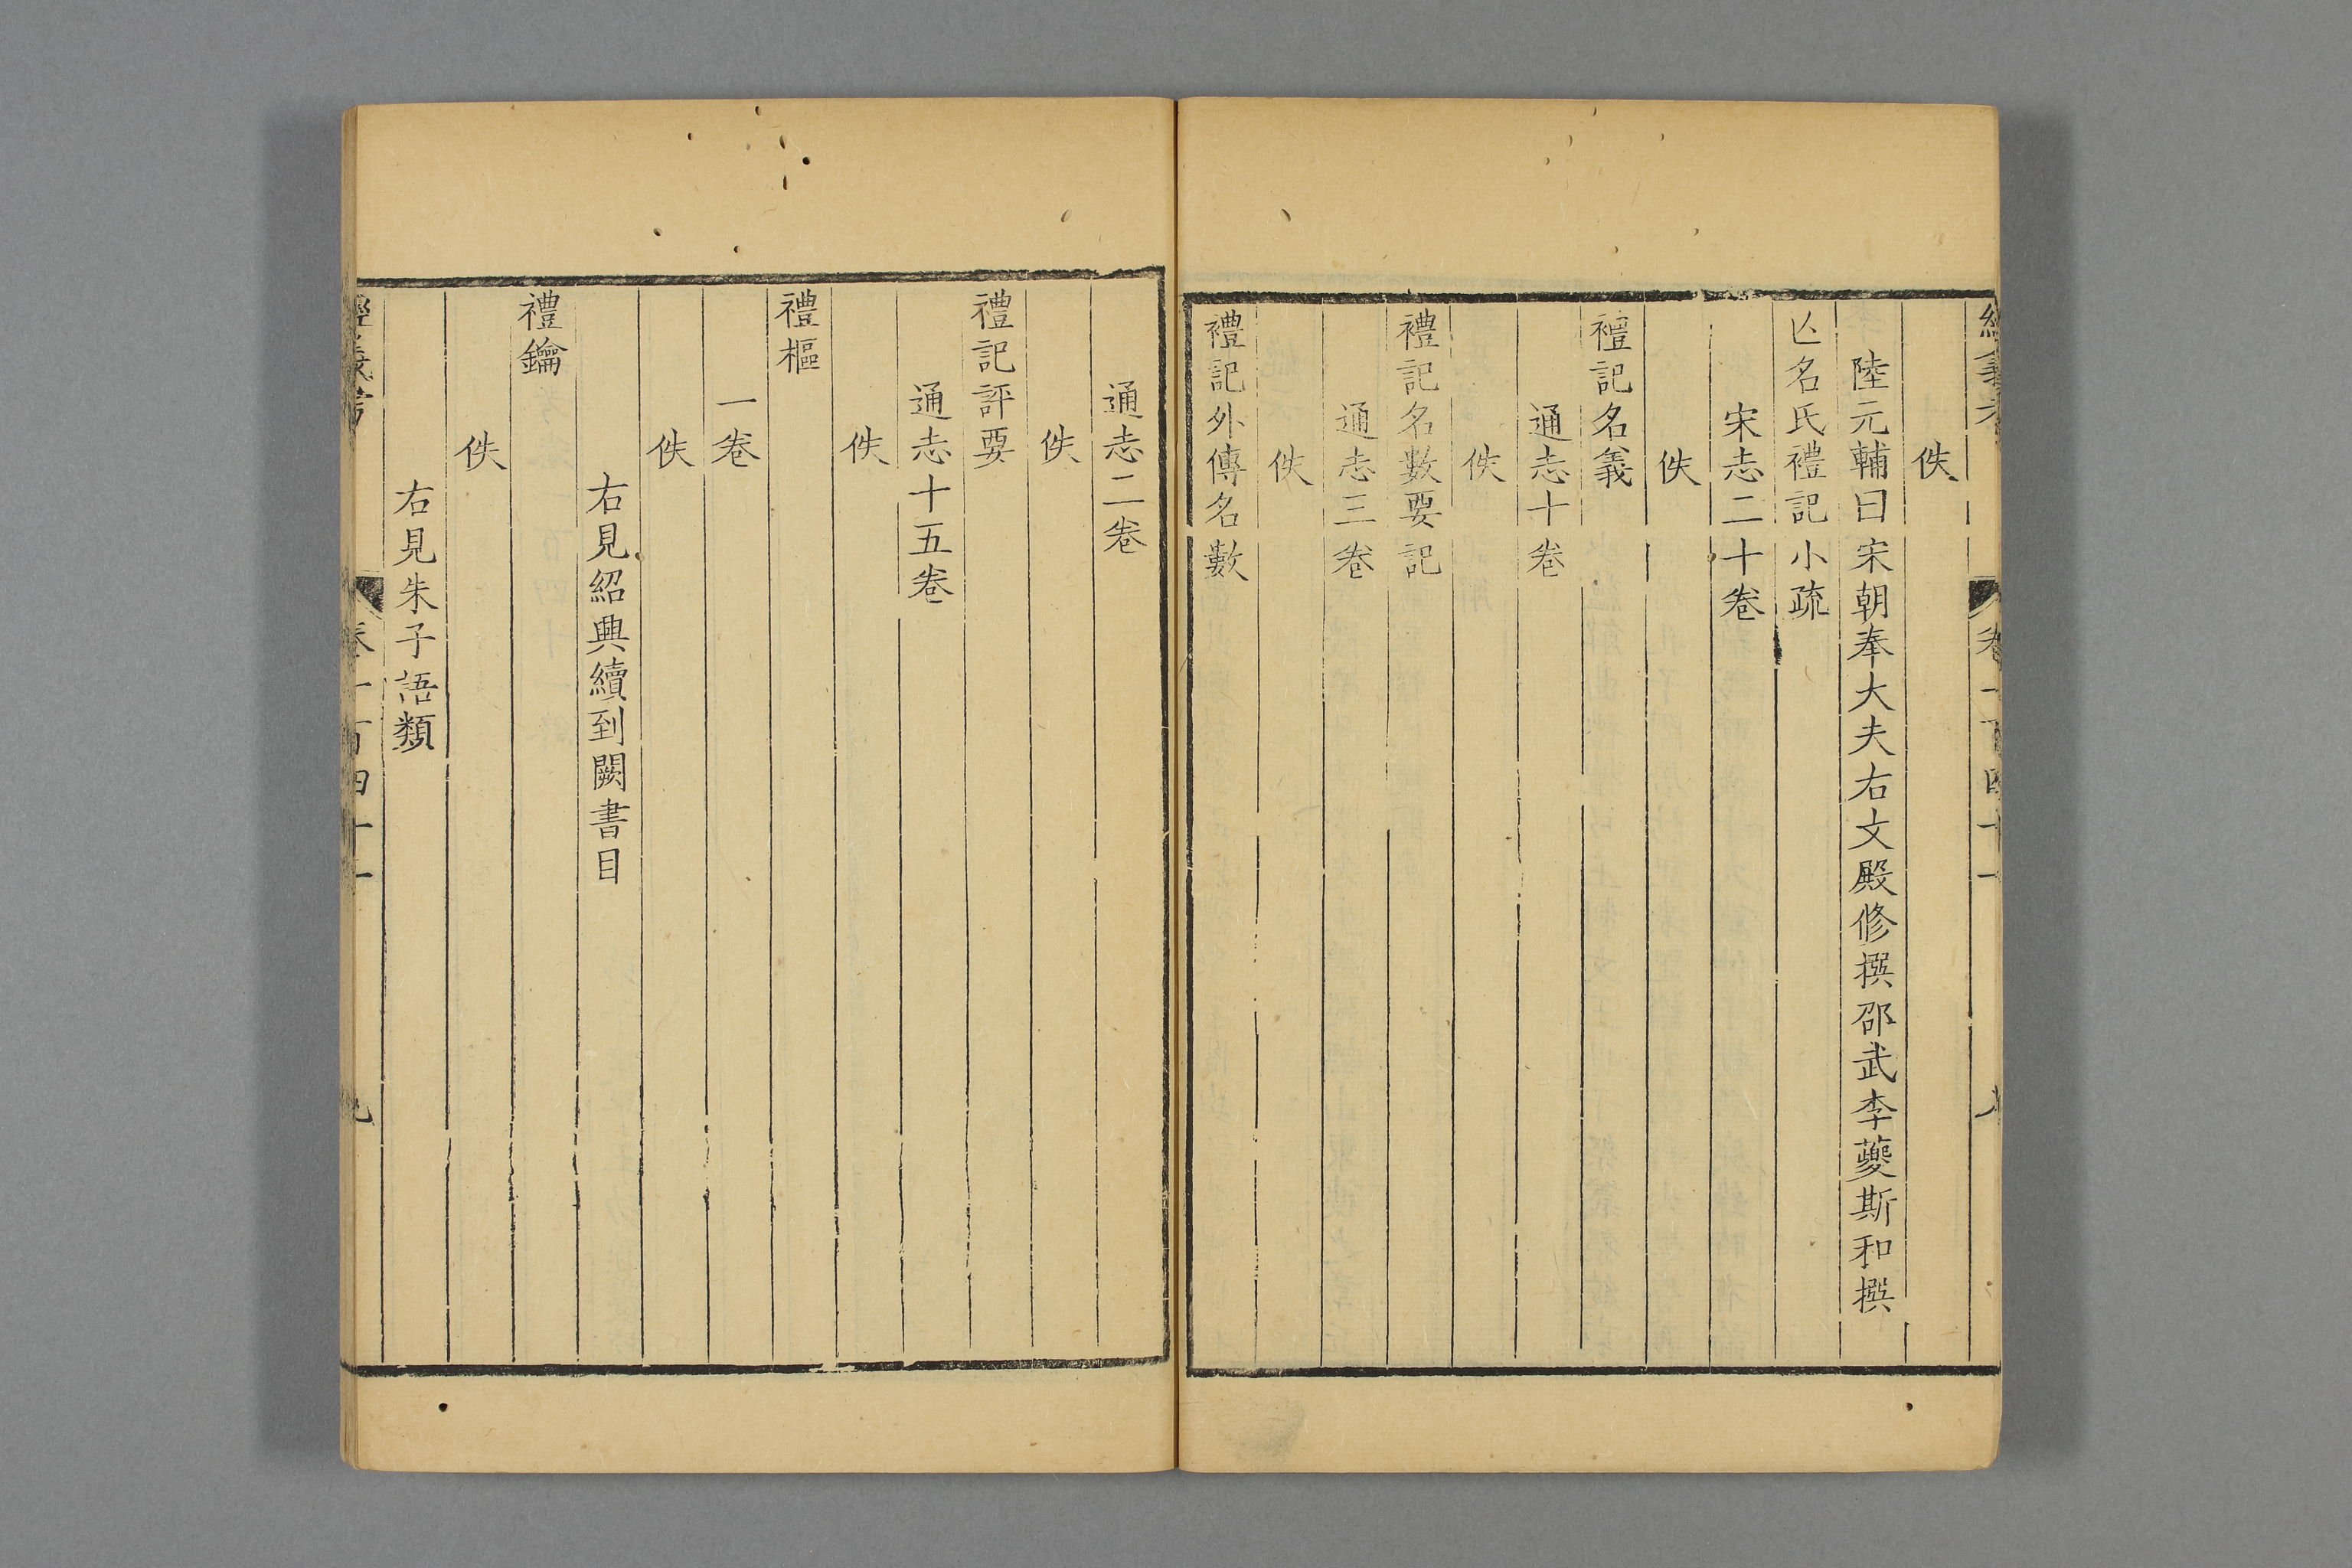 佚
陸元輔曰宋朝奉大夫右文殿修撰邵武李夔斯和撰
亾名氏禮記小疏
宋志二十卷
佚
禮記名義
通志十卷
佚
禮記名數要記
通志三卷
佚
禮記外傳名數
通志二卷
佚
禮記評要
通志十五卷
佚
禮樞
一卷
佚
右見紹興續到闕書目
禮鑰
佚
右見朱子語類